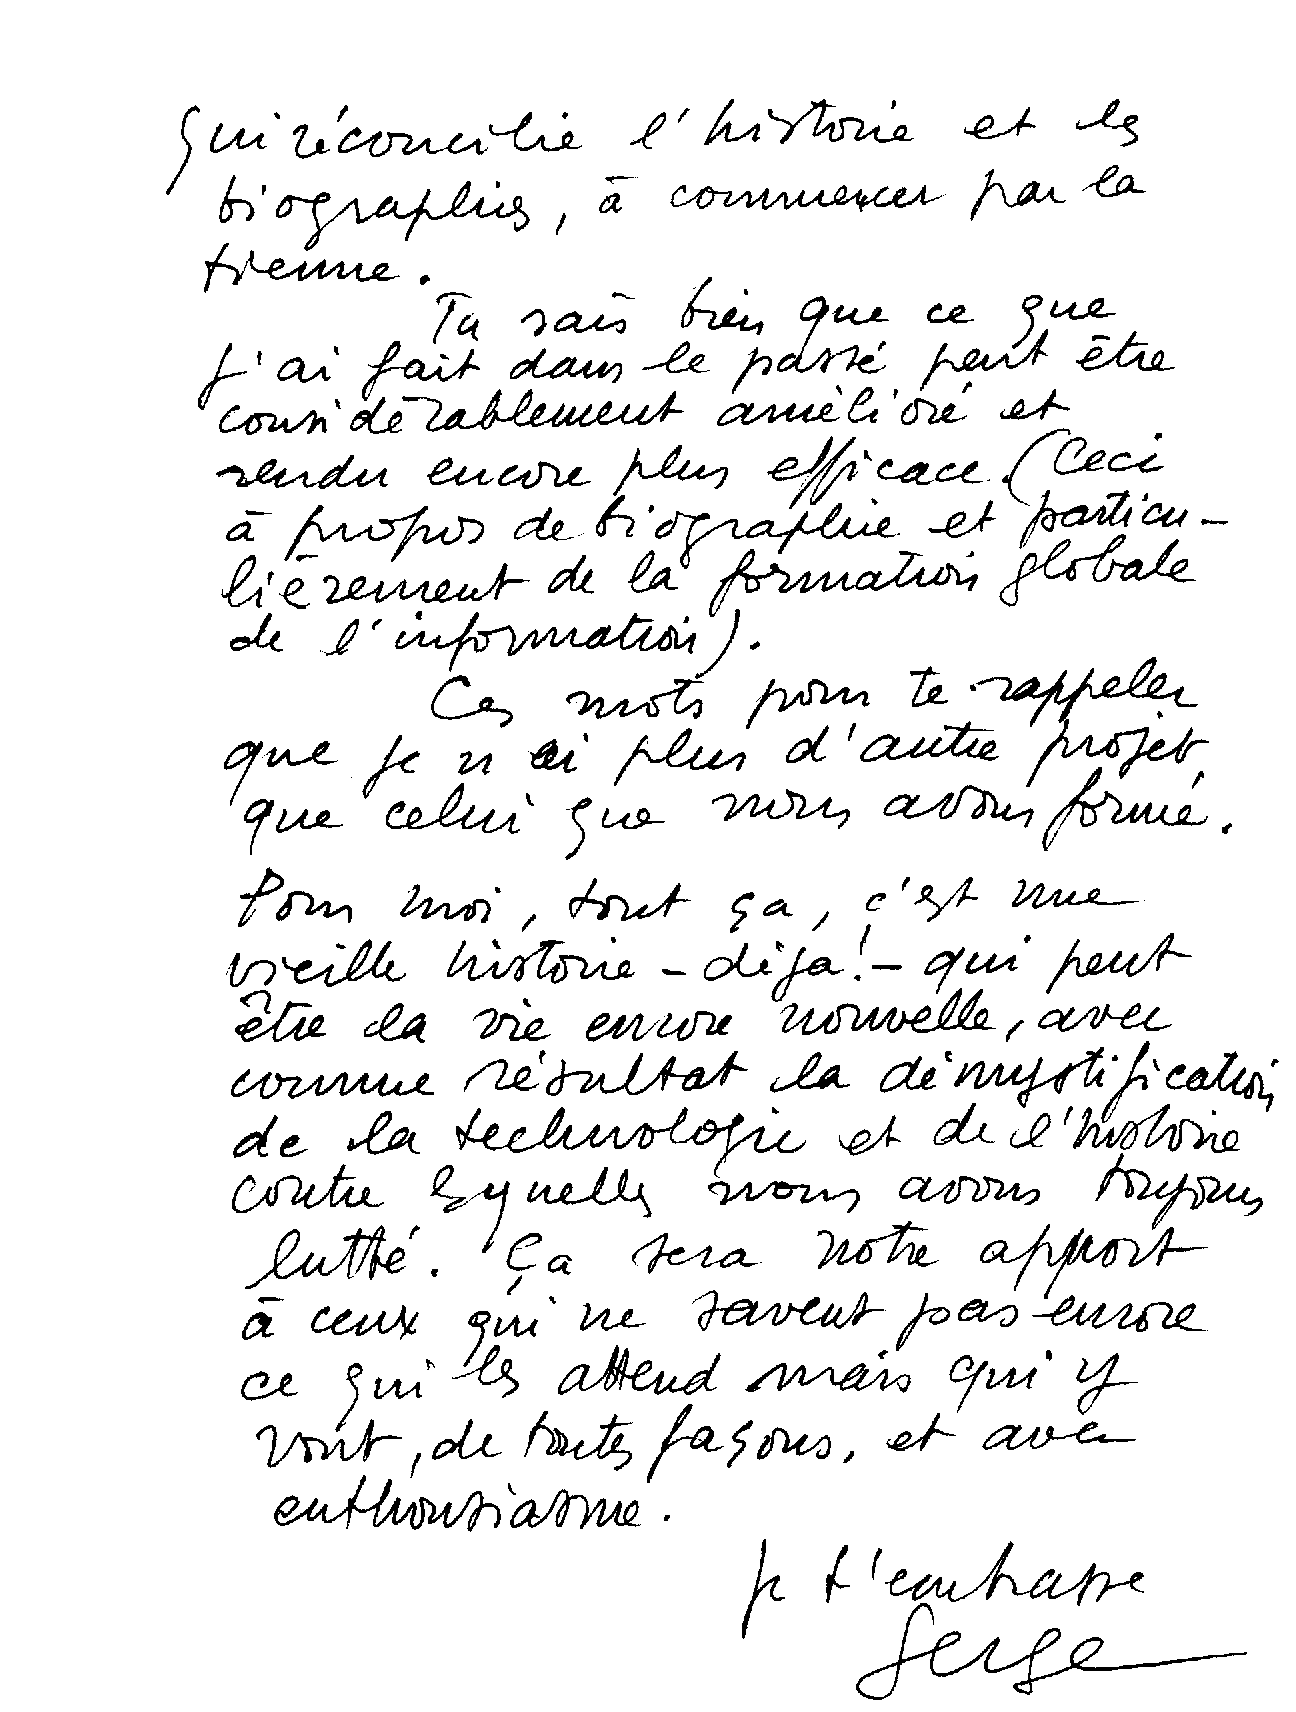 qui réconcilie l'histoire et les
biographies, à commencer par la
tienne.
Tu sais bien que ce que
j'ai fait dans le passé peut être
considérablement amélioré et
rendu encore plus efficace. (Ceci
à propos de biographie et particu-
lièrement de la formation globale
de l'information).
Ces mots pour te rappeler
que je n'ai plus d'autre projet
que celui que nous avons formé.
Pour moi, tout ça, c'est une
vieille histoire - déjà! - qui peut
être la vie encore nouvelle, avec
comme résultat la démystification
de la technologie et de l'histoire
contre lesquelles nous avons toujours
lutté. Ça sera notre apport
à ceux qui ne savent pas encore
ce qui les attend mais qui y
vont, de toutes façons, et avec
enthousiasme.
Je t'embrasse
Serge